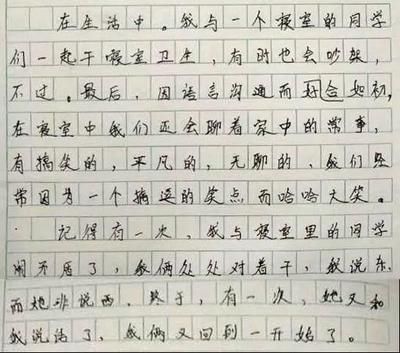 在生活中。我与一个寝室的同学
们一起干寝室卫生，有时也会吵架，
不过。最后，因语言沟通而好合如初，
在寝室中我们还会聊着家中的常事，
有搞笑的，平凡的，无聊的、我们经
常因为一个搞逗的笑点而哈哈大笑。
记得有一次，我与寝室里的同学
闹矛盾了，我俩处处对着干，我说东，
而她非说西。终于，有一次，她又和
我说话了，我俩又回到一开始了。